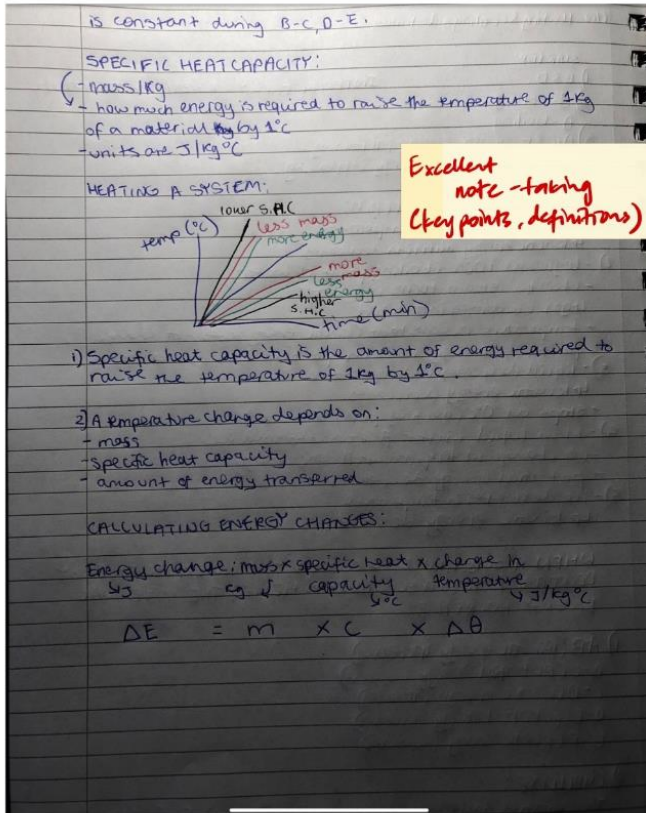 is constant during B-C, D-E.
SPECIFIC HEAT CAPACITY:
- mass/kg
- how much energy is required to raise the temperature of 1kg
of a material by 1°C
- units are J/kg°C
Excellent
note-taking
(key points, definitions)
HEATING A SYSTEM:
temp (°C)
lower S.H.C
less mass
more energy
more
mass
less
energy
higher
S.H.C
time (min)
1) Specific heat capacity is the amount of energy required to
raise the temperature of 1kg by 1°C.
2) A temperature change depends on:
- mass
- specific heat capacity
- amount of energy transferred
CALCULATING ENERGY CHANGES:
Energy change: mass × specific heat × change in
↳J kg ↓ capacity temperature
↳°C ↳ J/kg°C
ΔE = m × c × Δθ